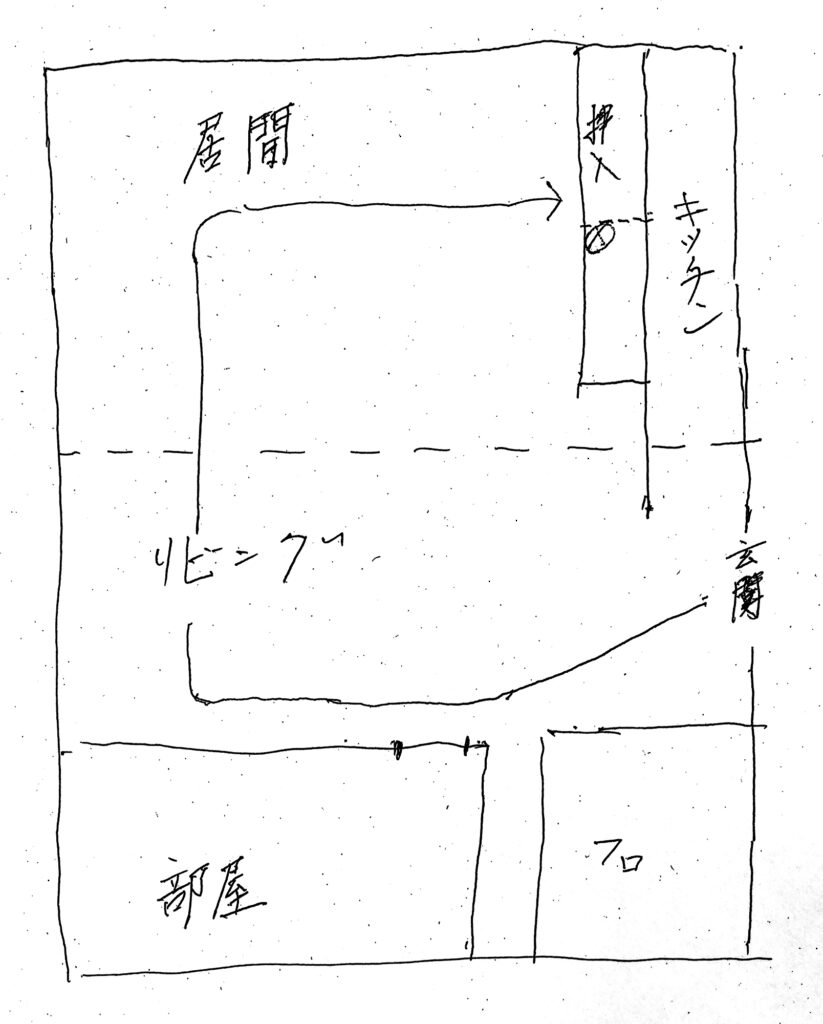 居間
押入
キッチン
リビング
玄関
部屋
フロ